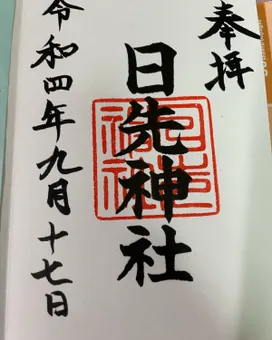 奉拝
日先神社
令和四年九月十七日